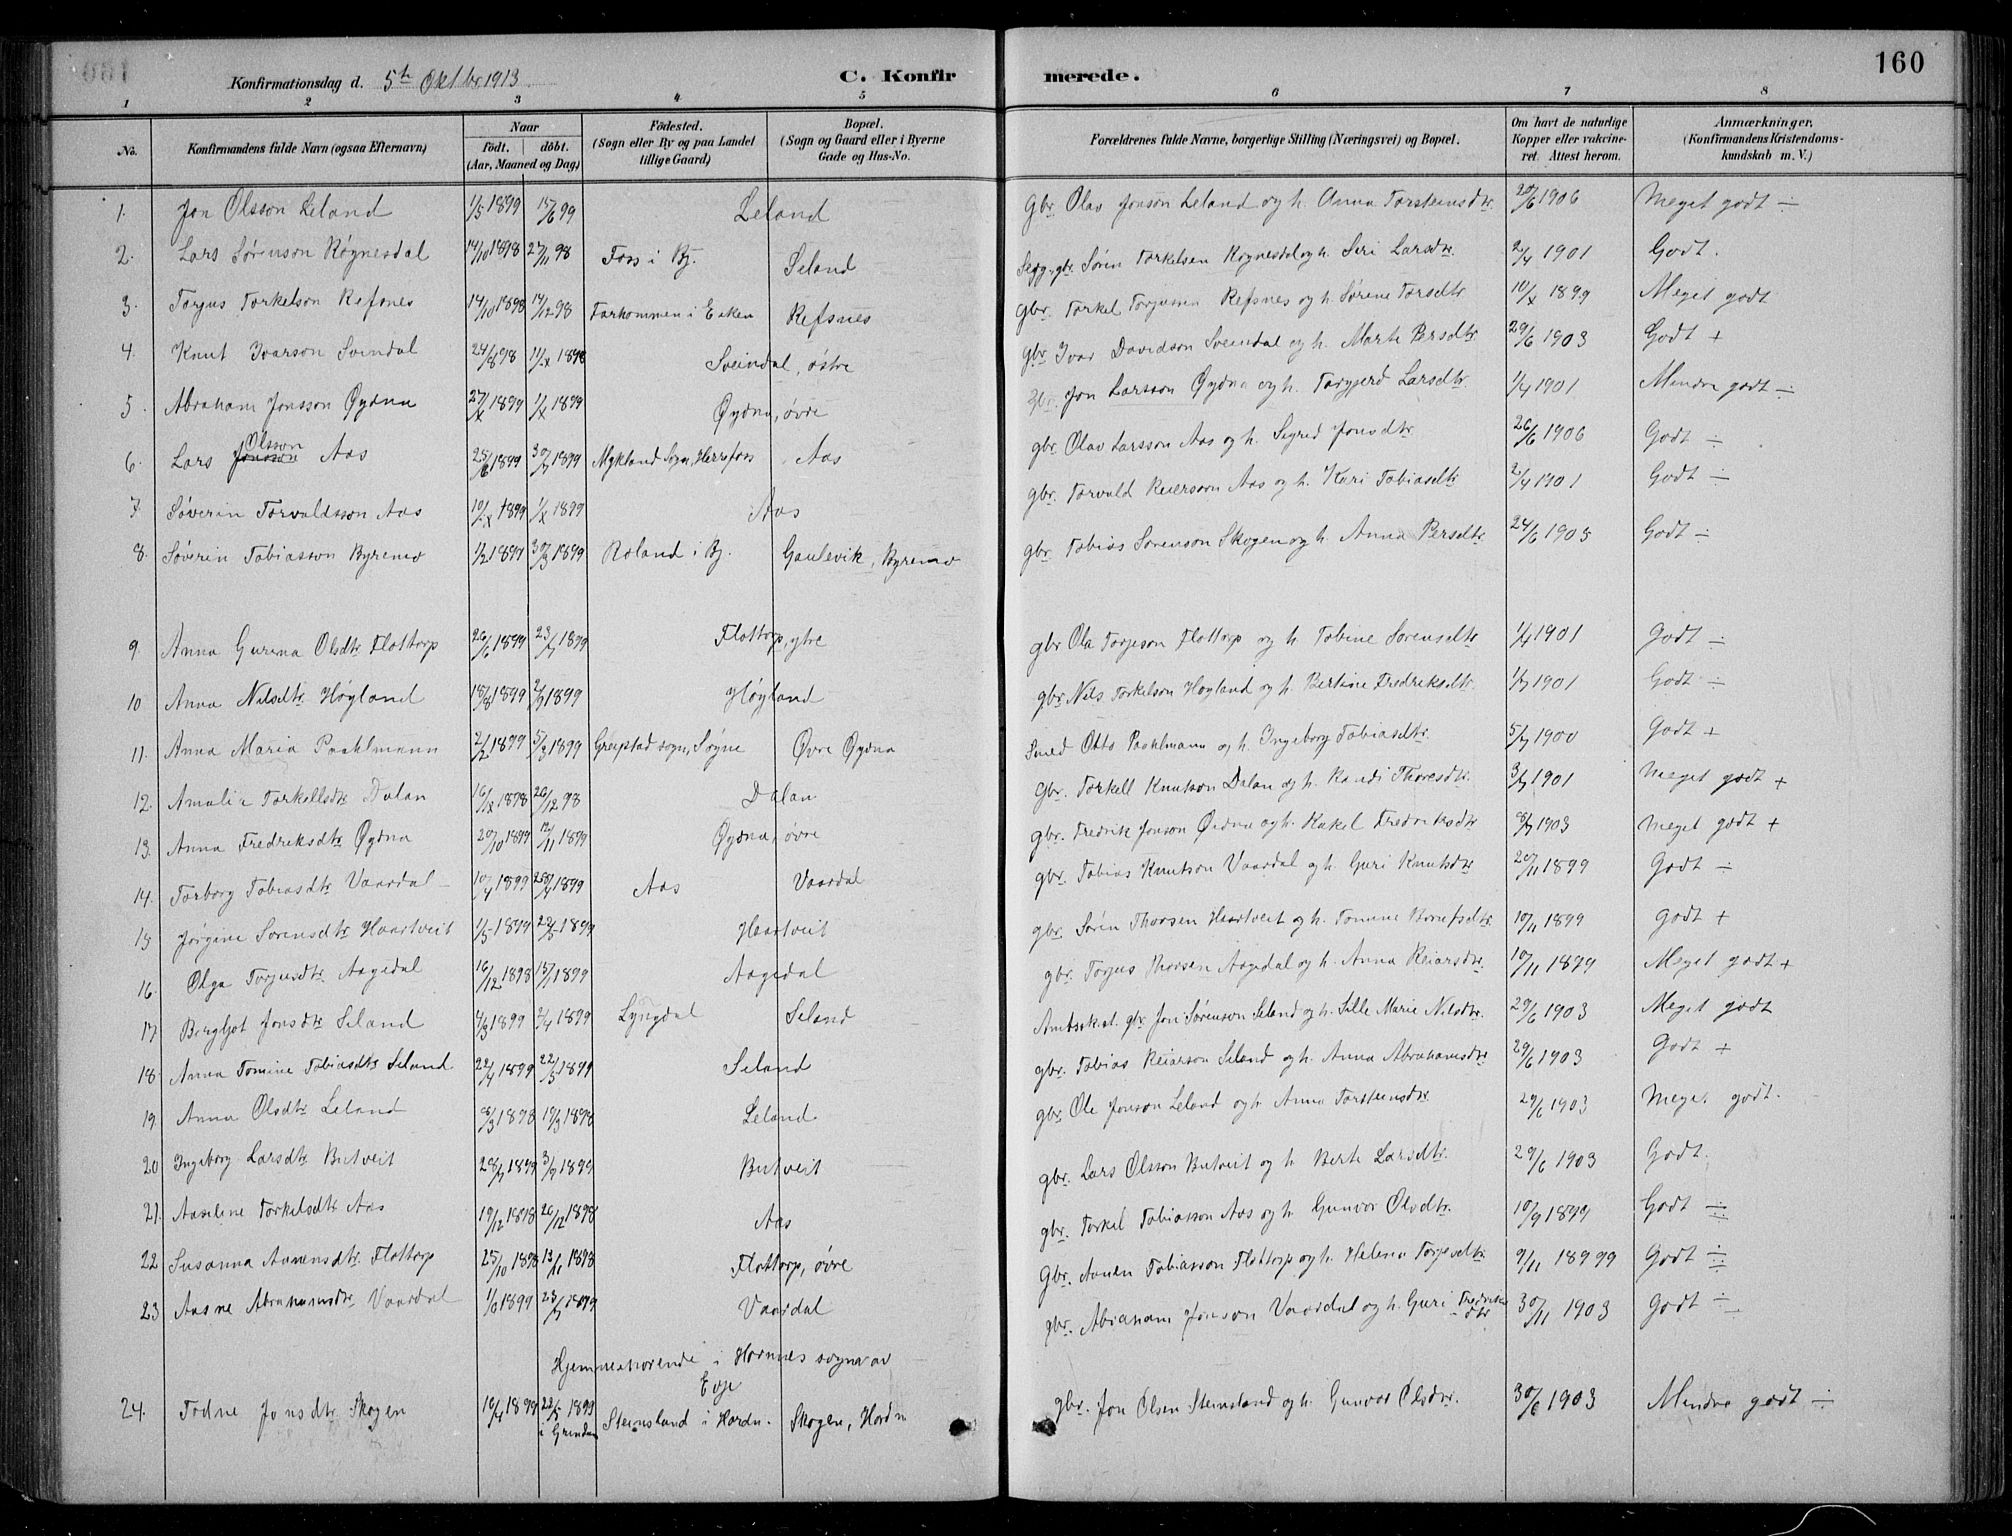 160
Konfirmationsdag d. 5te Oktbr 1913
C. Konfirmerede.
1 2 3 4 5 6 7 8
No. Konfirmandens fulde Navn (ogsaa Efternavn) Naar født. døbt. (Aar, Maaned og Dag) Fødested. (Sogn eller By og paa Landet tillige Gaard) Bopæl. (Sogn og Gaard eller i Byerne Gade og Hus-No. Forældrenes fulde Navne, borgerlige Stilling (Næringsvei) og Bopæl. Om havt de naturlige Kopper eller vakcineret. Attest herom. Anmærkninger, (Konfirmandens Kristendomskundskab m. V.)
1. Jon Olsson Leland 1/5 1899 15/6 99 Leland gbr. Olav Jonson Leland og h. Anna Torsteinsdtr. 20/6 1906 Meget godt ÷
2. Lars Sørenson Røgnesdal 14/10 1898 27/11 98 Foss i Bj. Seland gbr. Søren Torkelsen Røgnesdal og h. Seri Larsdtr. 2/4 1901 Godt.
3. Torgus Torkelson Refsnes 14/10 1898 14/12 98 Forkommen i Eiken Refsnes gbr. Torkel Torjussen Refsnes og h. Sørene Torsdtr 10/X 1899 Meget godt
4. Knut Ivarson Svindal 24/8 98 11/X 1898 Sveindal, østre gbr. Ivar Davidson Sveindal og h. Marte Persdtr. 29/6 1903 Godt +
5. Abraham Jonsson Øydna 27/X 1899 1/X 1899 Øydna, øvre gbr. Jon Larsson Øydna og h. Torgjerd Larsdtr. 1/4 1901 Mindre godt ÷
6. Lars Jonsson Olsson Aas 25/6 1899 30/7 1899 Mykland Sogn, Herefoss Aas gbr. Olav Larsson Aas og h. Sigred Jonsdtr 26/6 1906 Godt ÷
7. Søverin Torvaldsson Aas 10/X 1899 1/X 1899 Aas gbr. Torvald Reierson Aas og h. Kari Tobiasdtr 2/4 1901 Godt ÷
8. Søverin Tobiasson Byremo 1/2 1899 30/3 1899 Roland i Bj. Gaulevik, Byremo gbr. Tobias Sørenson Skogen og h. Anna Persdtr. 24/6 1903 Godt ÷
9. Anna Gurina Olsdtr Flottorp 26/6 1899 23/7 1899 Flottorp, ytre gbr Ola Torjeson Flottorp og h. Tobine Sørensdtr 1/4 1901 Godt ÷
10 Anna Nilsdtr. Høyland 18/8 1899 2/9 1899 Høyland gbr Nils Torkelson Høyland og h. Bertine Fredriksdtr. 1/7 1901 Godt ÷
11. Anna Maria Paahlmann 2/2 1899 5/3 1899 Greipstad sogn, Søgne Øvre Øydna Smed Otto Paahlmann og h. Ingeborg Tobiasdtr. 5/7 1900 Godt +
12. Amalie Torkellsdtr Dalan 16/IX 1898 26/12 98 Dalan gbr. Torkell Knutson Dalan og h. Randi Thoresdtr. 3/7 1901 Meget godt +
13. Anna Fredriksdtr Øydna 20/10 1899 12/11 1899 Øydna, øvre gbr. Fredrik Jonson Øidna og h. Rakel Fredriksdtr 8/7 1903 Meget godt +
14. Torborg Tobiasdtr. Vaardal 10/4 1899 28/4 1899 Aas Vaardal gbr. Tobias Knutson Vaardal og h. Guri Knutsdtr 20/11 1899 Godt ÷
15 Jørgine Sørensdtr. Haartveit 1/5 1899 22/5 1899 Haartveit gbr. Søren Thorsen Haartveit og h. Tomine Bernfsdtr. 10/11 1899 Godt +
16. Olga Torjusdtr Aagedal 16/12 1898 15/1 1899 Aagedal gbr. Torjus Thorsen Aagedal og h. Anna Reiarsdtr. 10/11 1899 Meget godt +
17. Bergljot Jonsdtr Seland 4/3 1899 2/4 1899 Lyngdal Seland Amtsskst. gbr Jon Sørenson Seland og h. Sille Marie Nilsdtr. 29/6 1903 Meget godt
18. Anna Tomine Tobiasdtr Seland 22/4 1899 22/5 1899 Seland gbr. Tobias Reiarson Seland og h. Anna Abrahamsdtr 29/6 1903 Godt +
19. Anna Olsdtr Leland 8/3 1898 19/3 1898 Leland gbr. Ole Jonson Leland og h. Anna Torsteinsdtr. 29/6 1903 Meget godt.
20 Ingeborg Larsdtr Butveit 28/7 1899 3/9 1899 Butveit gbr. Lars Olsson Butveit og h Berte Larsdtr. 29/6 1903 Godt.
21. Aaselene Torkelsdtr Aas 19/12 1898 26/12 1898 Aas gbr. Torkel Tobiasson Aas og h. Gunvor Olsdtr. 10/9 1899 Godt ÷
22 Susanna Aanensdtr. Flottorp 25/10 1898 13/11 1898 Flottorp, øvre Gbr. Aanen Tobiasson Flottorp og h. Helena Torjesdtr 9/11 18999 Godt ÷
23 Aasne Abrahamsdtr Vaardal 1/6 1899 23/7 1899 Vaardal gbr. Abraham Jonson Vaardal og h. Guri Fredriksdtr 30/11 1903 Godt ÷
Hjemmehørende i Hornnes sogn av Evje
24. Todne Jonsdtr. Skogen 10/4 1899 22/5 1899 i Grindum Steinsland i Hordn. Skogen, Hordn gbr. Jon Olsen Steinsland og h. Gunvor Olsdtr. 30/6 1903 Mindre godt ÷